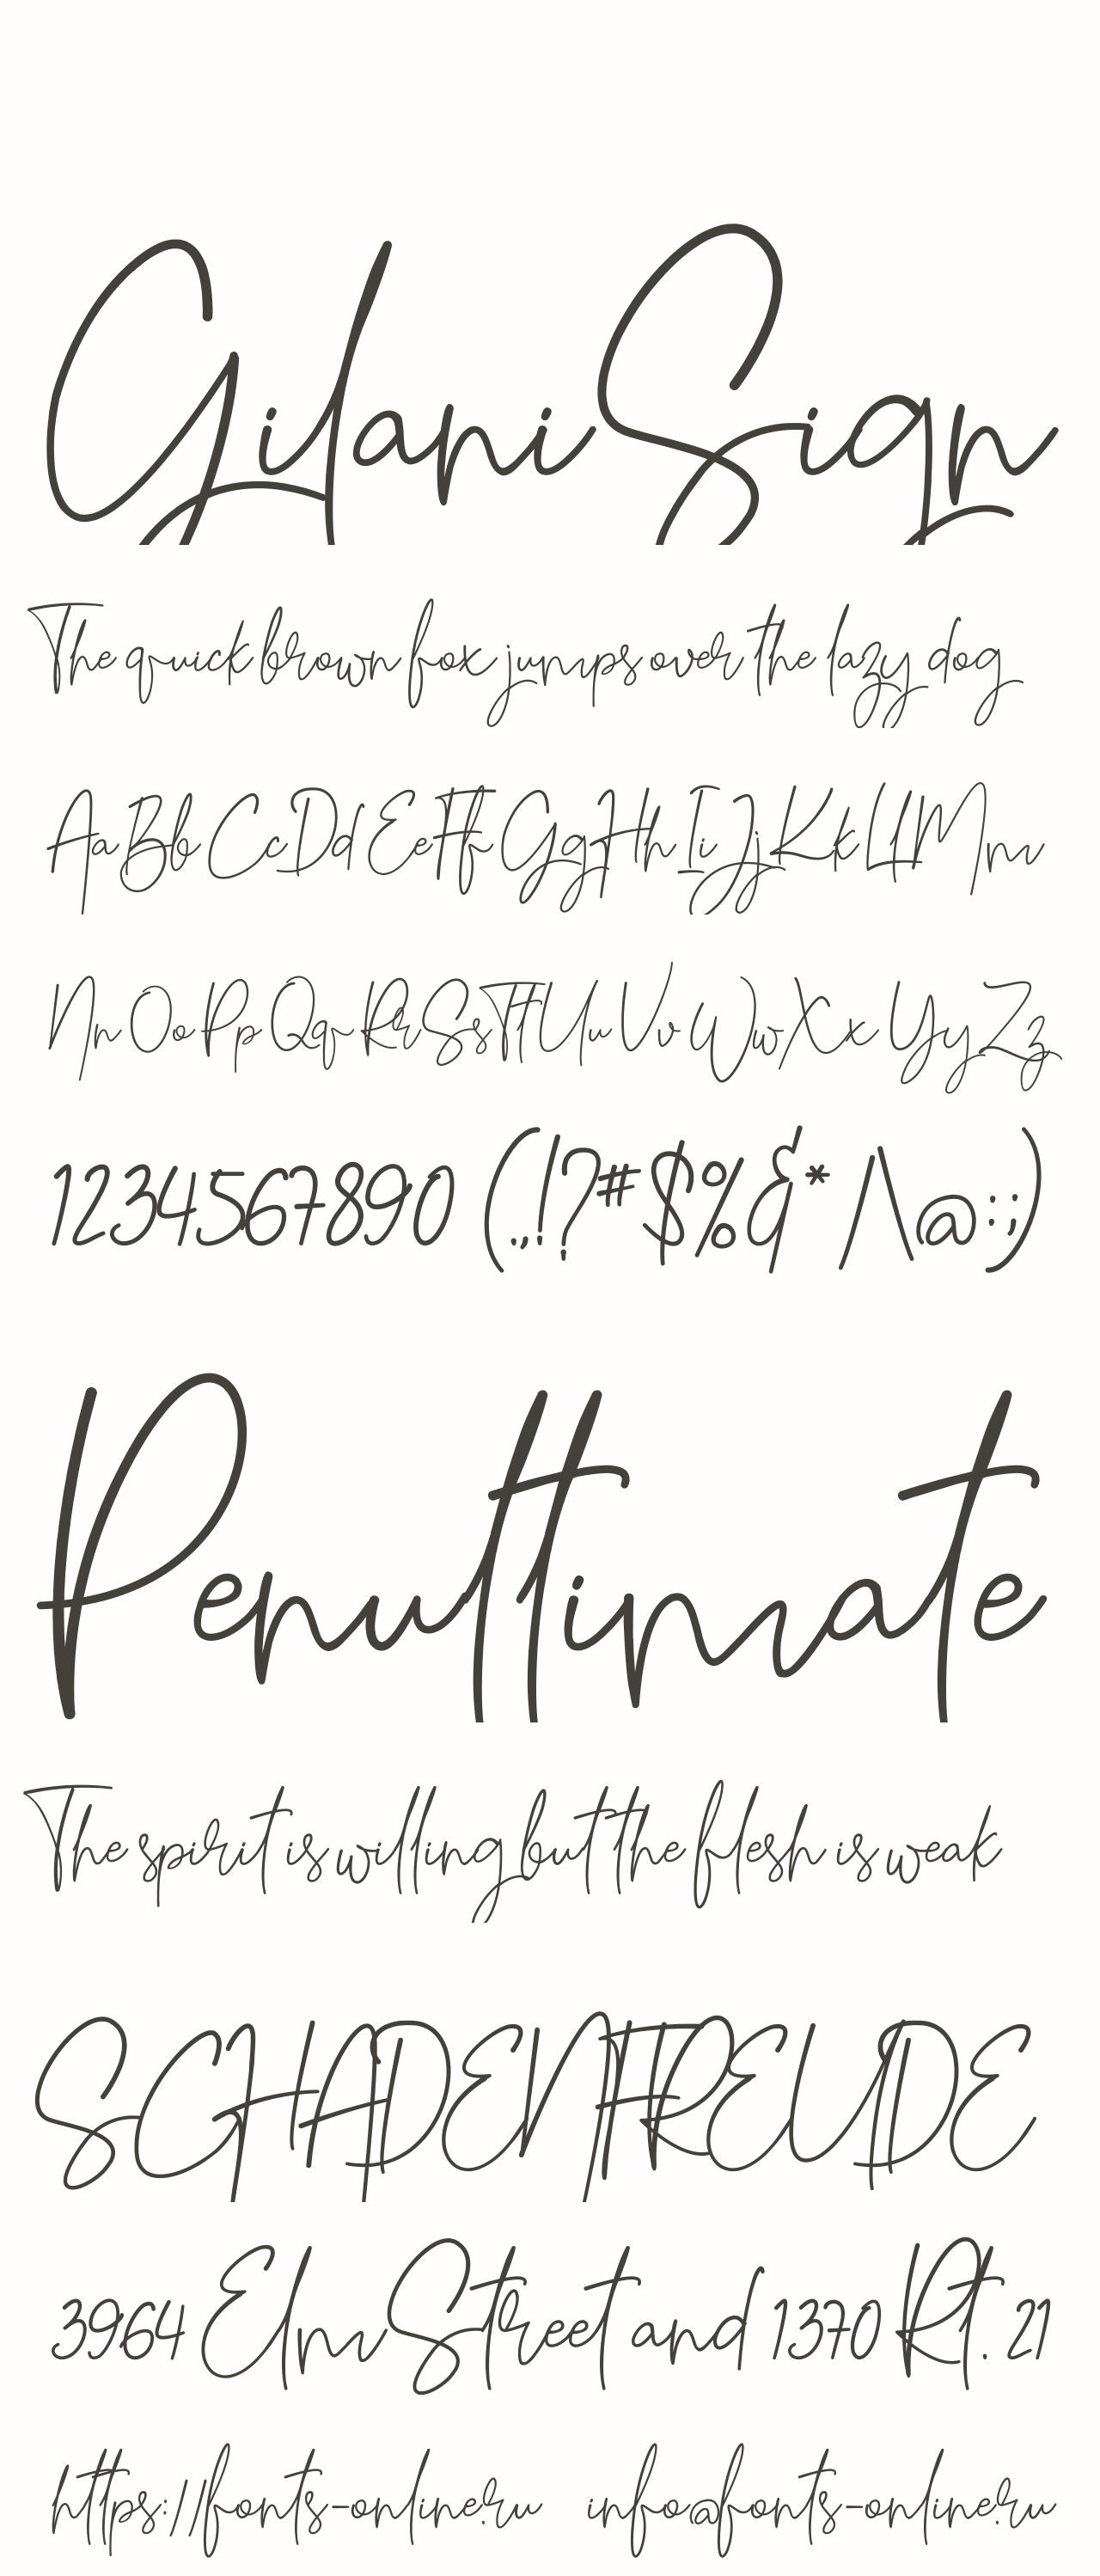 Gilani Sign
The quick brown fox jumps over the lazy dog
Aa Bb Cc Dd Ee Ff Gg Hh Ii Jj Kk Ll Mm
Nn Oo Pp Qq Rr Ss Tt Uu Vv Ww Xx Yy Zz
1234567890 (.,!?#$%&* /\@:;)
Penultimate
The spirit is willing but the flesh is weak
SCHADENFREUDE
3964 Elm Street and 1370 Rt. 21
https://fonts-online.ru info@fonts-online.ru